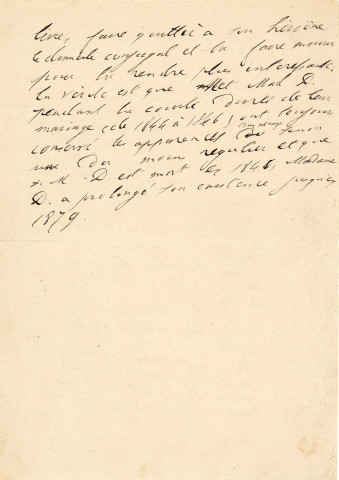 livre, faire quitter à son héroïne
le domicile conjugal et la faire mourir
pour la rendre plus intéressante.
La vérité est que M et Mad D.
pendant la courte durée de leur
mariage (de 1844 à 1846) ont toujours
conservé les apparences d'un ménage
du moins regulier et que
si M. D est mort en 1846, Madame
D. a prolongé son existence jusqu'en
1879.